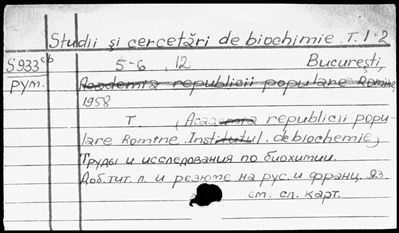 Studii şi cercetări de biochimie. T. 1-2
S933 cb 5-6 ,12 Bucureşti,
рум. Academia republicii populare Romîne,
1958
T , Academia republicii popu-
lare Romîne. Institutul de biochemie)
Труды и исследования по биохимии.
Доб. тит. л. и резюме на рус. и франц. яз.
см. сл. карт.